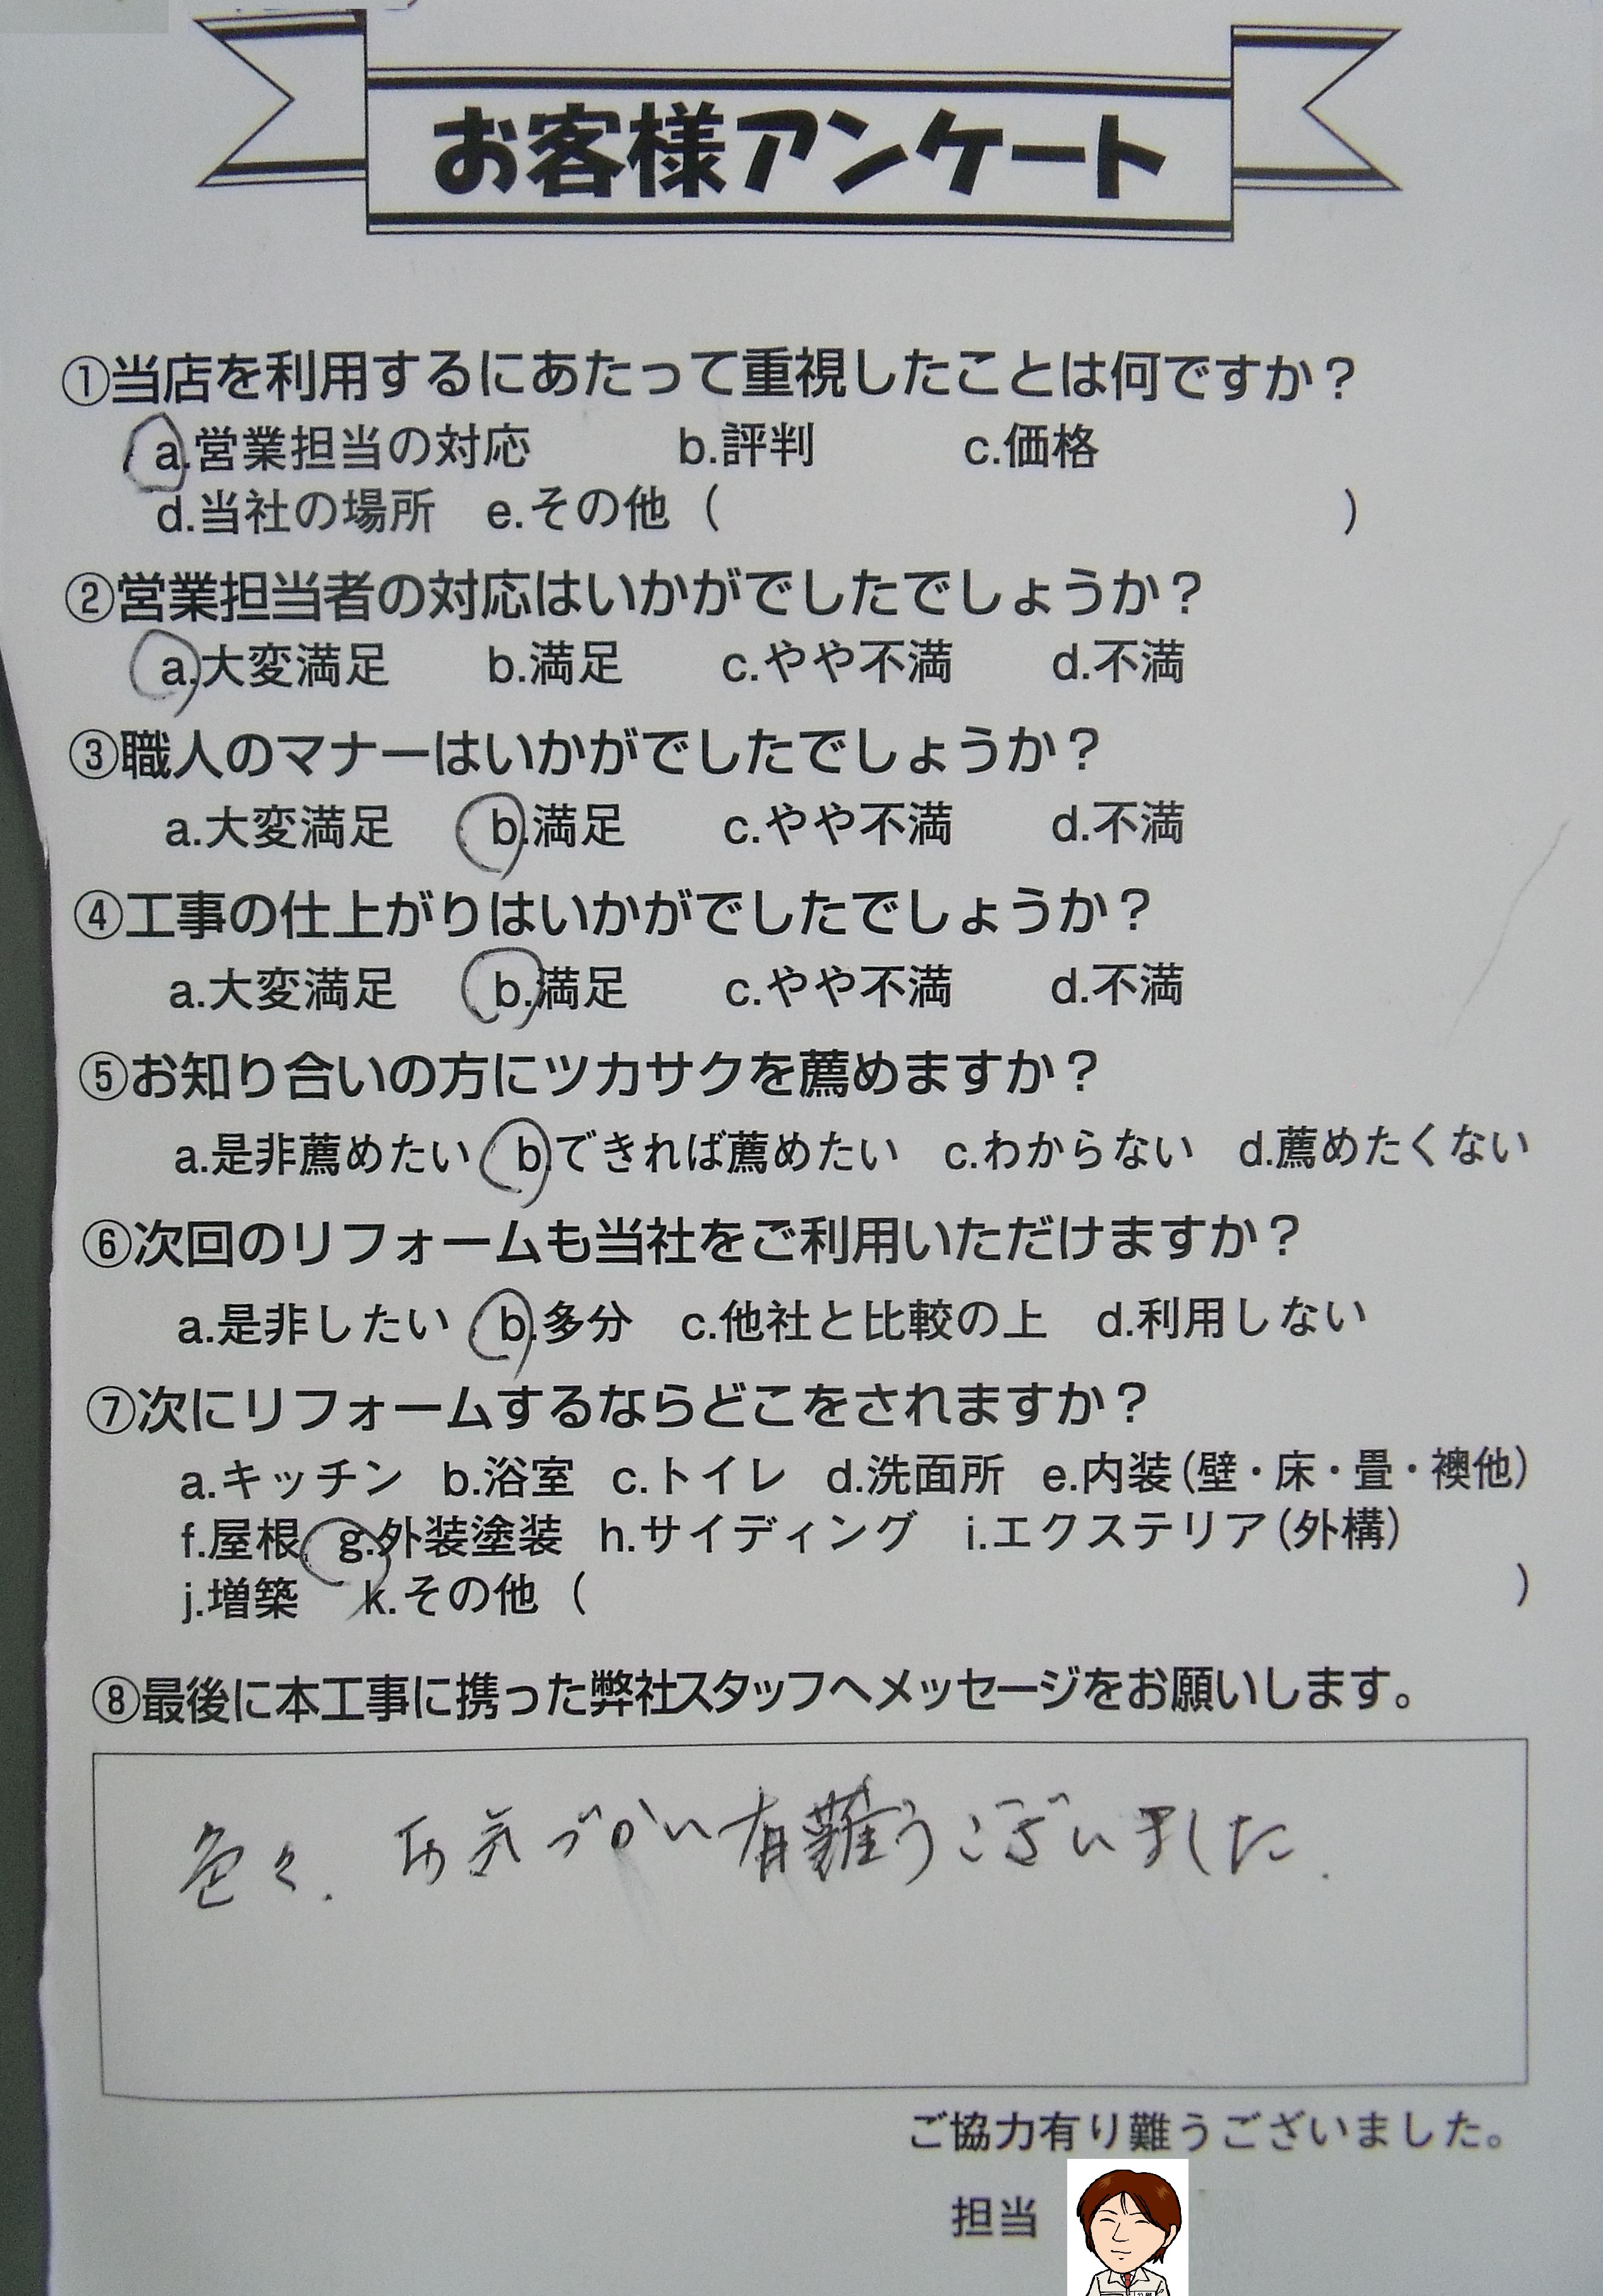 お客様アンケート
①当店を利用するにあたって重視したことは何ですか？
a.営業担当の対応 b.評判 c.価格
d.当社の場所 e.その他（ ）
②営業担当者の対応はいかがでしたでしょうか？
a.大変満足 b.満足 c.やや不満 d.不満
③職人のマナーはいかがでしたでしょうか？
a.大変満足 b.満足 c.やや不満 d.不満
④工事の仕上がりはいかがでしたでしょうか？
a.大変満足 b.満足 c.やや不満 d.不満
⑤お知り合いの方にツカサクを薦めますか？
a.是非薦めたい b.できれば薦めたい c.わからない d.薦めたくない
⑥次回のリフォームも当社をご利用いただけますか？
a.是非したい b.多分 c.他社と比較の上 d.利用しない
⑦次にリフォームするならどこをされますか？
a.キッチン b.浴室 c.トイレ d.洗面所 e.内装（壁・床・畳・襖他）
f.屋根 g.外装塗装 h.サイディング i.エクステリア（外構）
j.増築 k.その他（ ）
⑧最後に本工事に携った弊社スタッフへメッセージをお願いします。
色々、お気づかい有難うございました.
ご協力有り難うございました。
担当